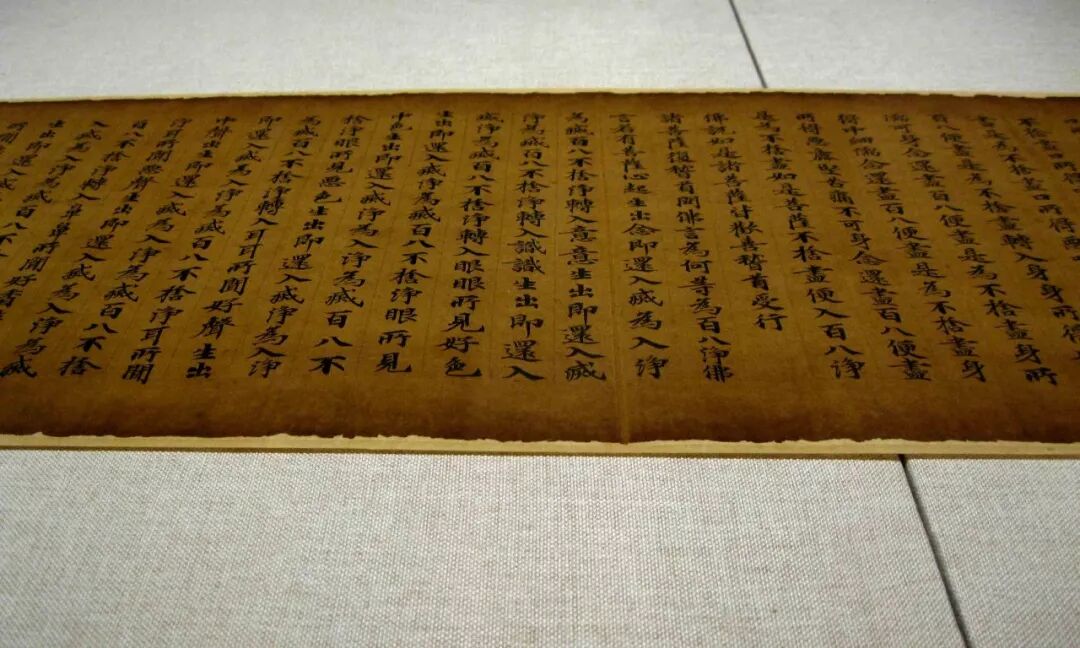 百八便盡是為不捨盡身所
中細滑可身念還盡百八便盡是為不捨盡身
所得惡麁堅苦痛不可身念還盡百八便盡
是為不捨盡如是菩薩不捨盡便入百八淨
佛說如是諸菩薩皆歡喜稽首受行
諸菩薩復稽首問佛言為何等為百八淨佛
言若有菩薩心起生出念即還入滅為入淨
為滅百八不捨淨轉入意意生出即還入滅
淨為滅百八不捨淨轉入識識生出即還入
滅淨為滅百八不捨淨轉入眼眼所見好色
生出即還入滅淨為滅百八不捨淨眼所見
中色生出即還入滅淨為入淨為滅百八不
捨淨眼所見惡色生出即還入滅淨為入淨
為滅百八不捨淨轉入耳耳所聞好聲生出
即還入滅為入淨為滅百八不捨淨耳所聞
中聲生出即還入滅為入淨為滅百八不捨
淨耳所聞惡聲生出即還入滅為入淨為滅
百八不捨淨轉入鼻鼻所聞好香
生出即還入滅為入淨為滅百八不